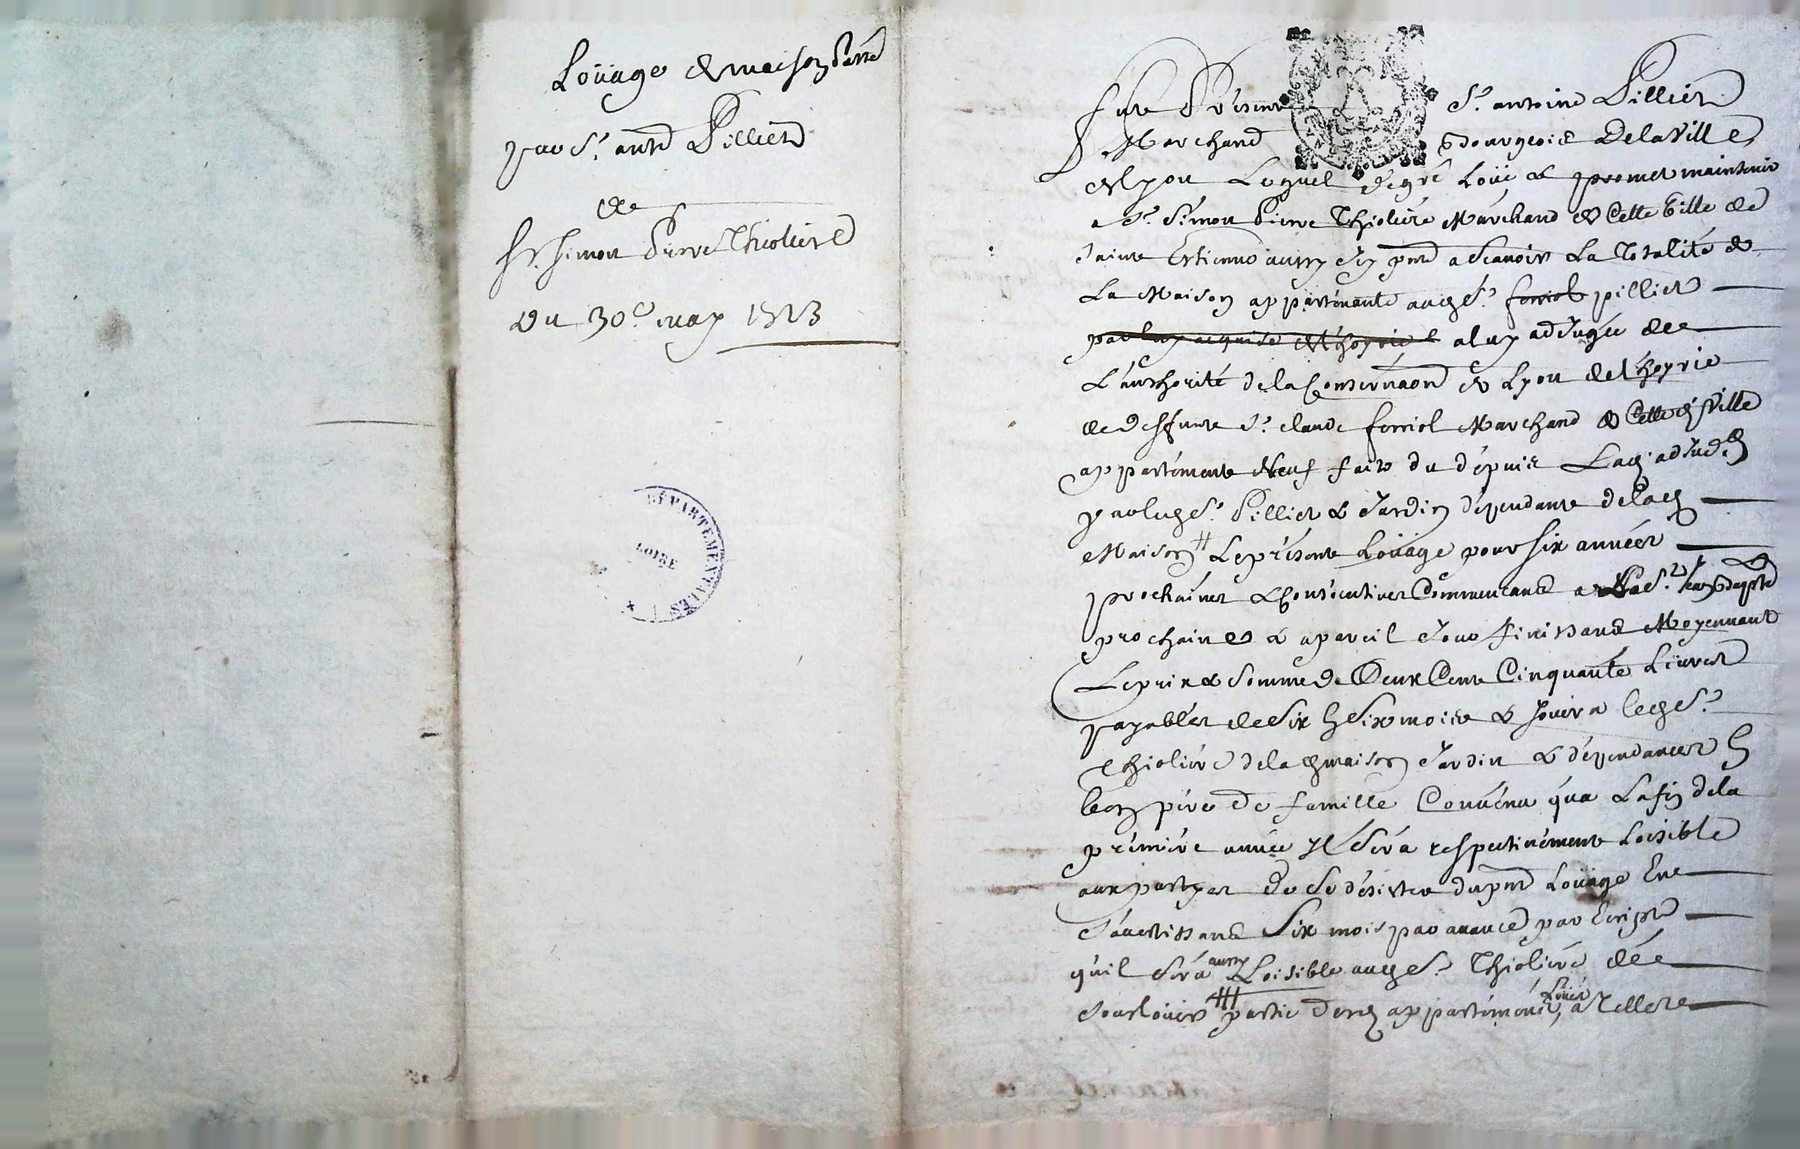 Loüage de maison passé
par Sr. antne Pillier
de
Sr. Simon Pierre Thioliere
Du 30e. may 1723
DÉPARTEMENTALES
LOIRE
fut Présent Sr. antoine Pillier
Marchand Bourgeois de la Ville
de Lyon Lequel de gré Loüe & promet maintenir
a Sr. Simon Pierre Thioliere Marchand de Cette Ville de
Sainte Estienne aussy Icy pnt a Scauoir La Totalité de
La Maison appartenante audt Sr. forriol pillier
par luy acquise de l'hoyrie a luy adJugée de
L'authorité de la Conseruaon de Lyon de l'hoyrie
de deffunt Sr. claude forriol Marchand de Cette d. Ville
appartement Neuf fait du dépuis Lad. adJudon
par led Sr. Pillier & Jardin dépendant de lad
Maison Le présent Loüage pour six années
prochaines & Consécutives Commencant a La St. Jean Bapte
prochaine & a pareil Jour finissant Moyennant
Le prix & Somme de Deux Cent Cinquante Liures
payables de Six en Six mois & Jouira led Sr.
Thioliere de lad maison Jardin & dépendances en
bon pére de famille Conuénu qua La fin de la
prémiére année Il Séra respectiuément Loisible
aux partyes de Se désister du pnt Loüage En
S'auertissant Six mois par auance par Escript
qu'il Séra aussy Loisible aud Sr. Thioliere de
Sourlouer partie desd appartéments Loües a Telle